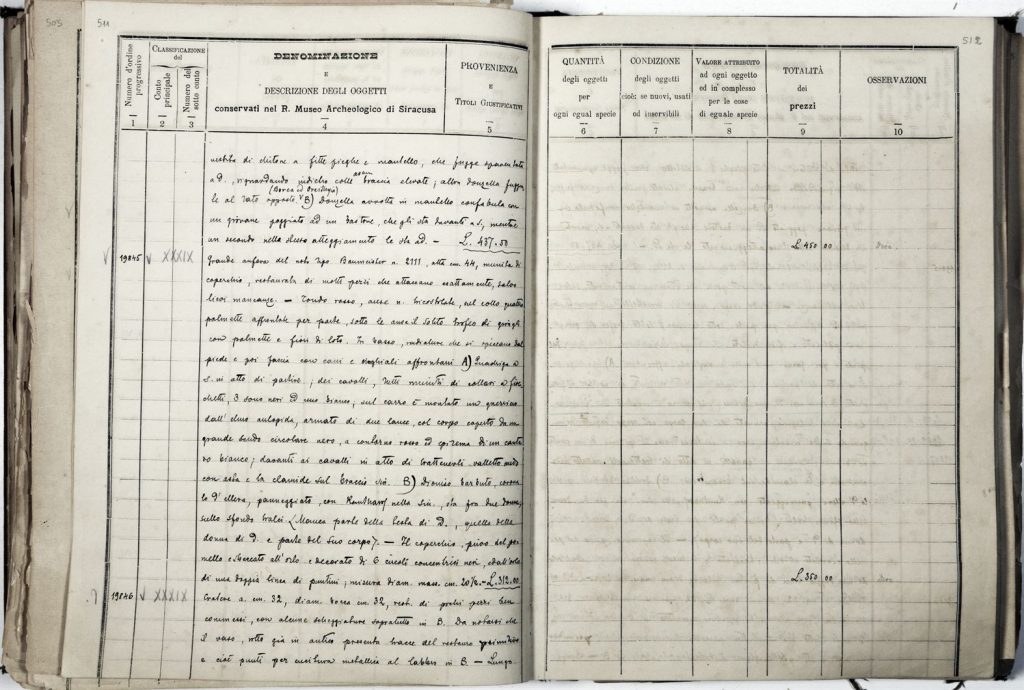 505 511
512
Numero d'ordine progressivo
CLASSIFICAZIONE del
Conto principale
Numero del sotto conto
DENOMINAZIONE
E
DESCRIZIONE DEGLI OGGETTI
conservati nel R. Museo Archeologico di Siracusa
PROVENIENZA
E
TITOLI GIUSTIFICATIVI
1 2 3 4 5
QUANTITÀ
degli oggetti
per
ogni egual specie
CONDIZIONE
degli oggetti
cioè: se nuovi, usati
od inservibili
VALORE ATTRIBUITO
ad ogni oggetto
od in complesso
per le cose
di eguale specie
TOTALITÀ
dei
prezzi
OSSERVAZIONI
6 7 8 9 10
vestita di chitone a fitte pieghe e mantello, che fugge spaventata
a d., riguardando indietro colle braccia elevate; altra donzella
(Borea ed Oreithyia)
le al lato opposto B) Donzella avvolta in mantello confabula con
un giovane poggiato ad un bastone, che gli sta davanti a s., mentre
un secondo nello stesso atteggiamento le sta a d. – L. 437.50
19845 XXXIX Grande anfora del noto tipo Baumeister n. 2111, alta cm. 44, munita di
coperchio, restaurata di molti pezzi che attaccano esattamente, salvo
lievi mancanze. – Fondo rosso, anse n. tricostolate, nel collo quattro
palmette affrontate per parte, sotto le anse il solito trofeo di
con palmette e fiori di loto. In basso, radiature che si spiccano dal
piede e poi fascia con cani e cinghiali affrontati A) Quadriga a
s. in atto di partire; dei cavalli, tutti muniti di collari a
3 sono neri ed uno bianco; sul carro è montato un guerriero
dall'elmo aulopida, armato di due lance, col corpo coperto da un
grande scudo circolare nero, a contorno rosso ed episema di un
bianco; davanti ai cavalli in atto di trattenerli valletto nudo
con asta e la clamide sul braccio sin. B) Dioniso barbuto,
d'ellera, panneggiato, con Kantharos nella sin., sta fra due donne,
sullo sfondo tralci (Manca parte della testa di D., quella della
donna di d. e parte del suo corpo). – Il coperchio, privo del
mello e sbeccato all'orlo è decorato di 6 circoli concentrici neri, e dall'orlo
di una doppia linea di puntini; misura diam. mass. cm. 20½. – L. 312.00
19846 XXXIX Cratere a. cm. 32, diam. bocca cm. 32, rest. di pochi pezzi ben
commessi, con alcune scheggiature sopratutto in B. Da notarsi che
il vaso, rotto già in antico presenta tracce del restauro primitivo
e cioè punti per cucitura metallica al labbro in B. – Lungo
L. 450 00
L. 350 00